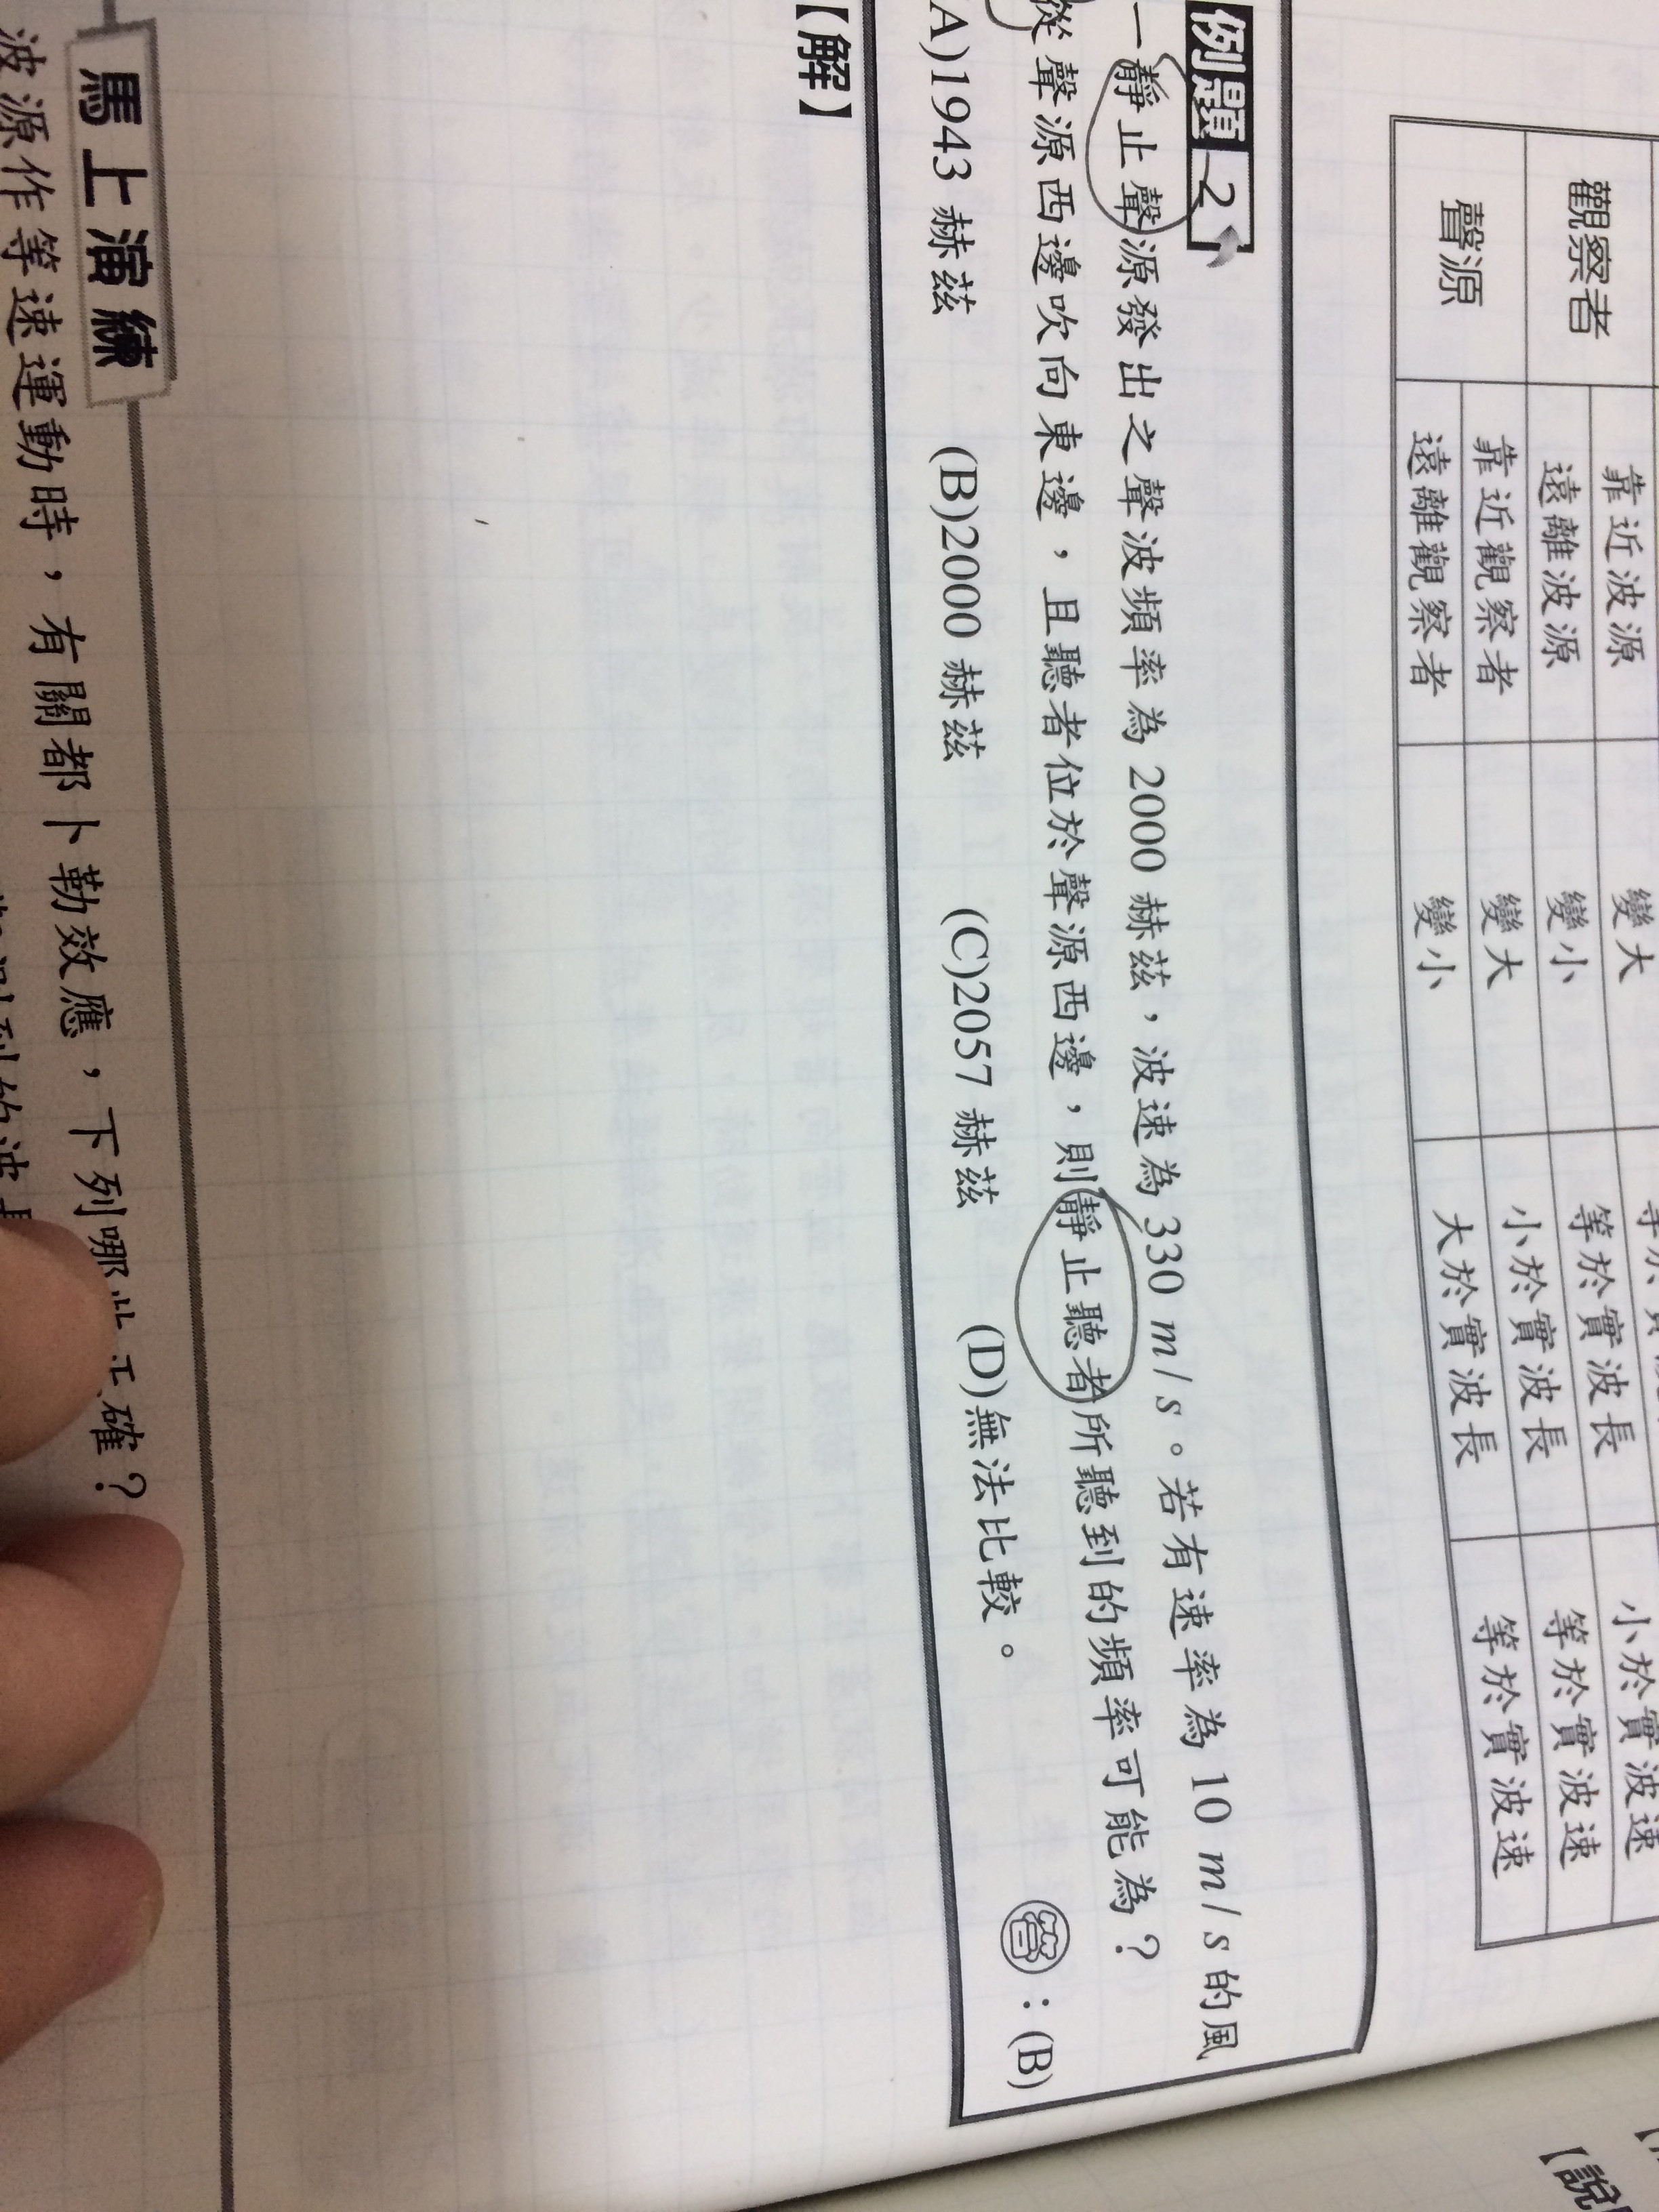 靠近波源 變大 小於實波速
觀察者 遠離波源 變小 等於實波長 等於實波速
聲源 靠近觀察者 變大 小於實波長 等於實波速
遠離觀察者 變小 大於實波長
例題 2
一靜止聲源發出之聲波頻率為 2000 赫茲，波速為 330 m/s。若有速率為 10 m/s 的風
從聲源西邊吹向東邊，且聽者位於聲源西邊，則靜止聽者所聽到的頻率可能為？
(A)1943 赫茲 (B)2000 赫茲 (C)2057 赫茲 (D)無法比較。 答：(B)
【解】
馬上演練
波源作等速運動時，有關都卜勒效應，下列哪些正確？
【說